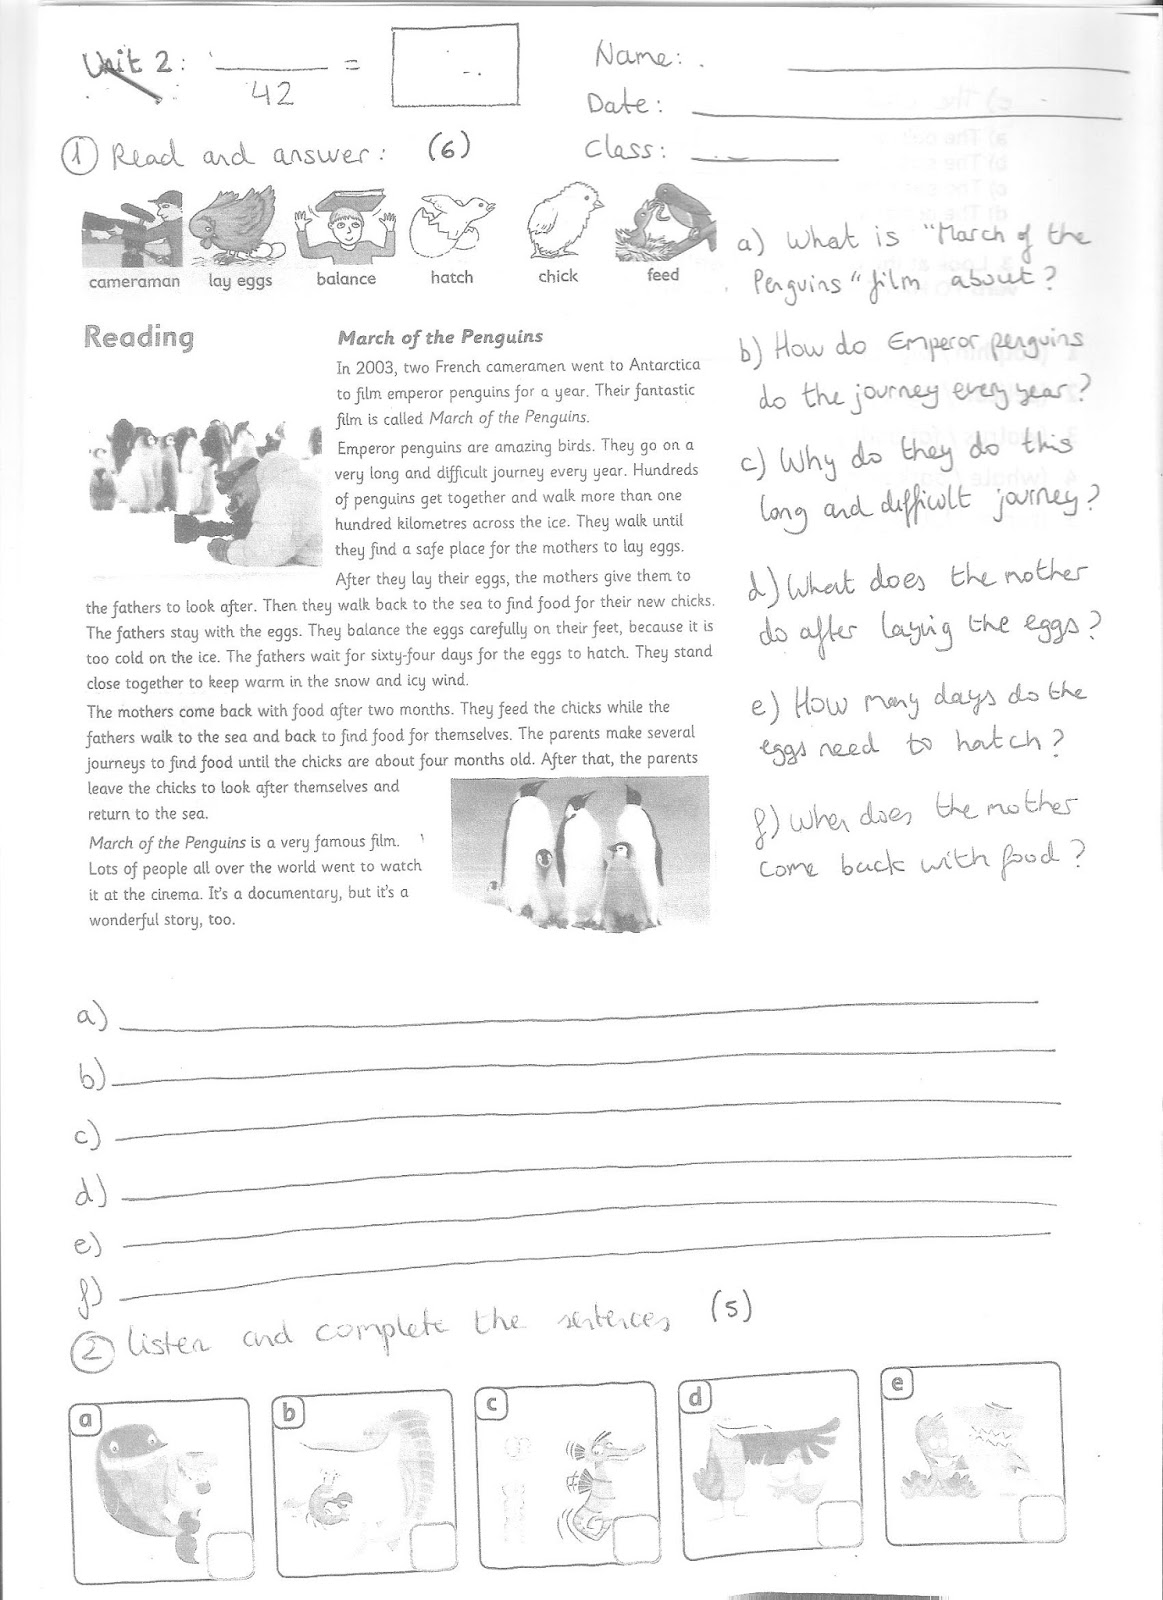 Unit 2: ____ =
42
Name:
Date:
Class:
① Read and answer: (6)
cameraman lay eggs balance hatch chick feed
a) What is "March of the
Penguins" film about?
b) How do Emperor penguins
do the journey every year?
c) Why do they do this
long and difficult journey?
d) What does the mother
do after laying the eggs?
e) How many days do the
eggs need to hatch?
f) When does the mother
come back with food?
Reading
March of the Penguins
In 2003, two French cameramen went to Antarctica
to film emperor penguins for a year. Their fantastic
film is called March of the Penguins.
Emperor penguins are amazing birds. They go on a
very long and difficult journey every year. Hundreds
of penguins get together and walk more than one
hundred kilometres across the ice. They walk until
they find a safe place for the mothers to lay eggs.
After they lay their eggs, the mothers give them to
the fathers to look after. Then they walk back to the sea to find food for their new chicks.
The fathers stay with the eggs. They balance the eggs carefully on their feet, because it is
too cold on the ice. The fathers wait for sixty-four days for the eggs to hatch. They stand
close together to keep warm in the snow and icy wind.
The mothers come back with food after two months. They feed the chicks while the
fathers walk to the sea and back to find food for themselves. The parents make several
journeys to find food until the chicks are about four months old. After that, the parents
leave the chicks to look after themselves and
return to the sea.
March of the Penguins is a very famous film.
Lots of people all over the world went to watch
it at the cinema. It's a documentary, but it's a
wonderful story, too.
a)
b)
c)
d)
e)
f)
② Listen and complete the sentences (5)
a b c d e